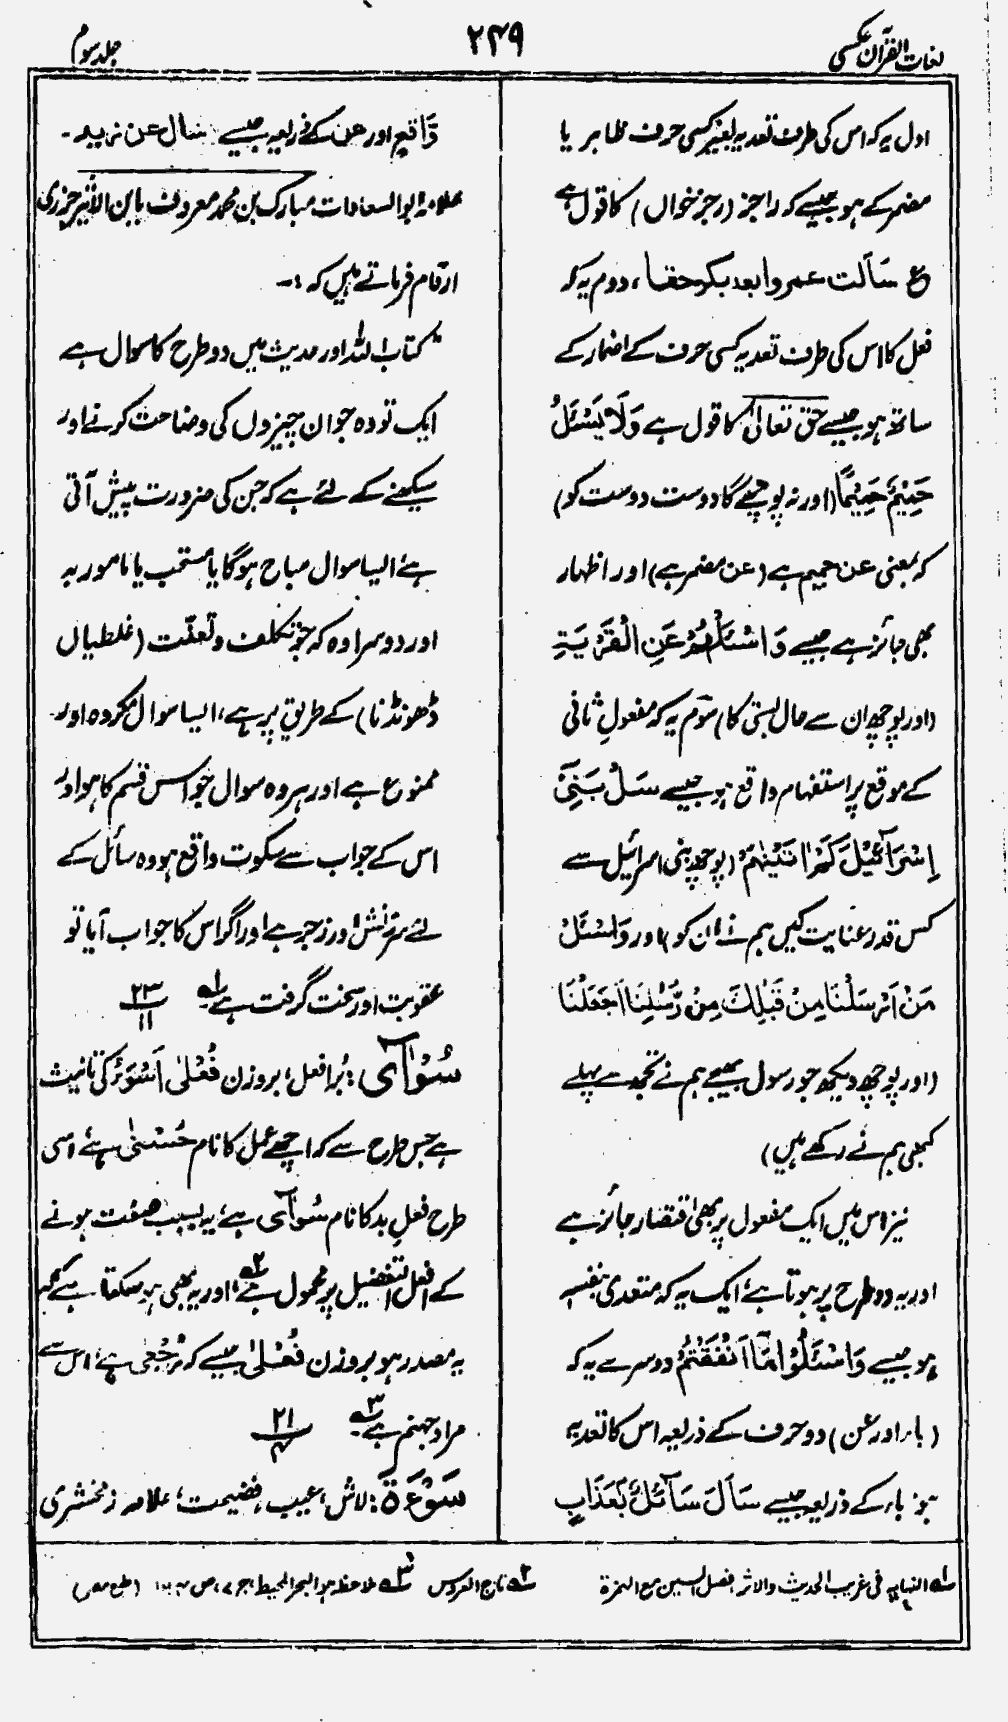 لغات القرآن عکسی
۲۴۹
جلد سوم
اول یہ کہ اس کی طرف تعدیہ بغیر کسی حرف ظاہر یا
مضمر کے ہو جیسے کہ راجز (رجز خواں) کا قول ہے
ع سَاَلت عمروا بعد بکر حفا، دوم یہ کہ
فعل کا اس کی طرف تعدیہ کسی حرف کے اضمار کے
ساتھ ہو جیسے حق تعالیٰ کا قول ہے وَلَا یَسْئَلُ
حَمِیْمٌ حَمِیْمًا (اور نہ پوچھے گا دوست دوست کو)
کہ بمعنی عن حمیم ہے (عن مضمر ہے) اور اظہار
بھی جائز ہے جیسے وَاسْئَلْهُمْ عَنِ الْقَرْیَةِ
(اور پوچھ ان سے حال بستی کا) سوم یہ کہ مفعولِ ثانی
کے موقع پر استفہام واقع ہو جیسے سَلْ بَنِیْٓ
اِسْرَآئِیْلَ کَمْ اٰتَیْنٰهُمْ (پوچھ بنی اسرائیل سے
کس قدر عنایت کیں ہم نے ان کو) اور وَاسْئَلْ
مَنْ اَرْسَلْنَا مِنْ قَبْلِكَ مِنْ رُّسُلِنَا اَجَعَلْنَا
(اور پوچھ دیکھ جو رسول بھیجے ہم نے تجھ سے پہلے
کبھی ہم نے رکھے ہیں)
نیز اس میں ایک مفعول پر بھی اقتصار جائز ہے
اور یہ دو طرح پر ہوتا ہے، ایک یہ کہ متعدی بنفسہ
ہو جیسے وَاسْئَلُوْا مَآ اَنْفَقْتُمْ دوسرے یہ کہ
(با، اور عن) دو حرف کے ذریعہ اس کا تعدیہ
ہو، باء کے ذریعہ جیسے سَاَلَ سَآئِلٌ بِعَذَابٍ
وَّاقِعٍ اور عن کے ذریعہ جیسے سال عن زید۔
علامہ ابو السعادات مبارک بن محمد معروف بابن الاثیر جزری
ارقام فرماتے ہیں کہ :۔
"کتاب اللہ اور حدیث میں دو طرح کا سوال ہے
ایک تو وہ جو ان چیزوں کی وضاحت کرنے اور
سیکھنے کے لئے ہے کہ جن کی ضرورت پیش آتی
ہے، ایسا سوال مباح ہوگا یا مستحب یا مامور بہ
اور دوسرا وہ کہ جو تکلف و تعنّت (غلطیاں
ڈھونڈنا) کے طریق پر ہے، ایسا سوال مکروہ اور
ممنوع ہے اور ہر وہ سوال جو اس قسم کا ہو اور
اس کے جواب سے سکوت واقع ہو وہ سائل کے
لئے سرزنش اور زجر ہے اور اگر اس کا جواب آیا تو
عقوبت اور سخت گرفت ہے ۱؎ ۲۳/۱۱
سُوْآٰی: بُرا فعل، بروزن فُعْلٰی اَسْوَءُ کی تانیث
ہے جس طرح سے کہ اچھے عمل کا نام حُسْنٰی ہے، اسی
طرح فعلِ بد کا نام سُوْآٰی ہے، یہ بسبب صفت ہونے
کے افعل التفضیل پر محمول ہے ۲؎، اور یہ بھی ہو سکتا ہے کہ
یہ مصدر ہو بروزن فُعْلٰی جیسے کہ رُجْعٰی ہے، اس سے
مراد جہنم ہے ۳؎ ۲۱/۴
سَوْءَة: لاش، عیب، فضیحت، علامہ زمخشری
۱؎ النہایہ فی غریب الحدیث والاثر فصل السین مع الہمزۃ
۲؎ تاج العروس ۳؎ ملاحظہ ہو البحر المحیط ج ۷، ص ۱۶۴ (طبع مصر)